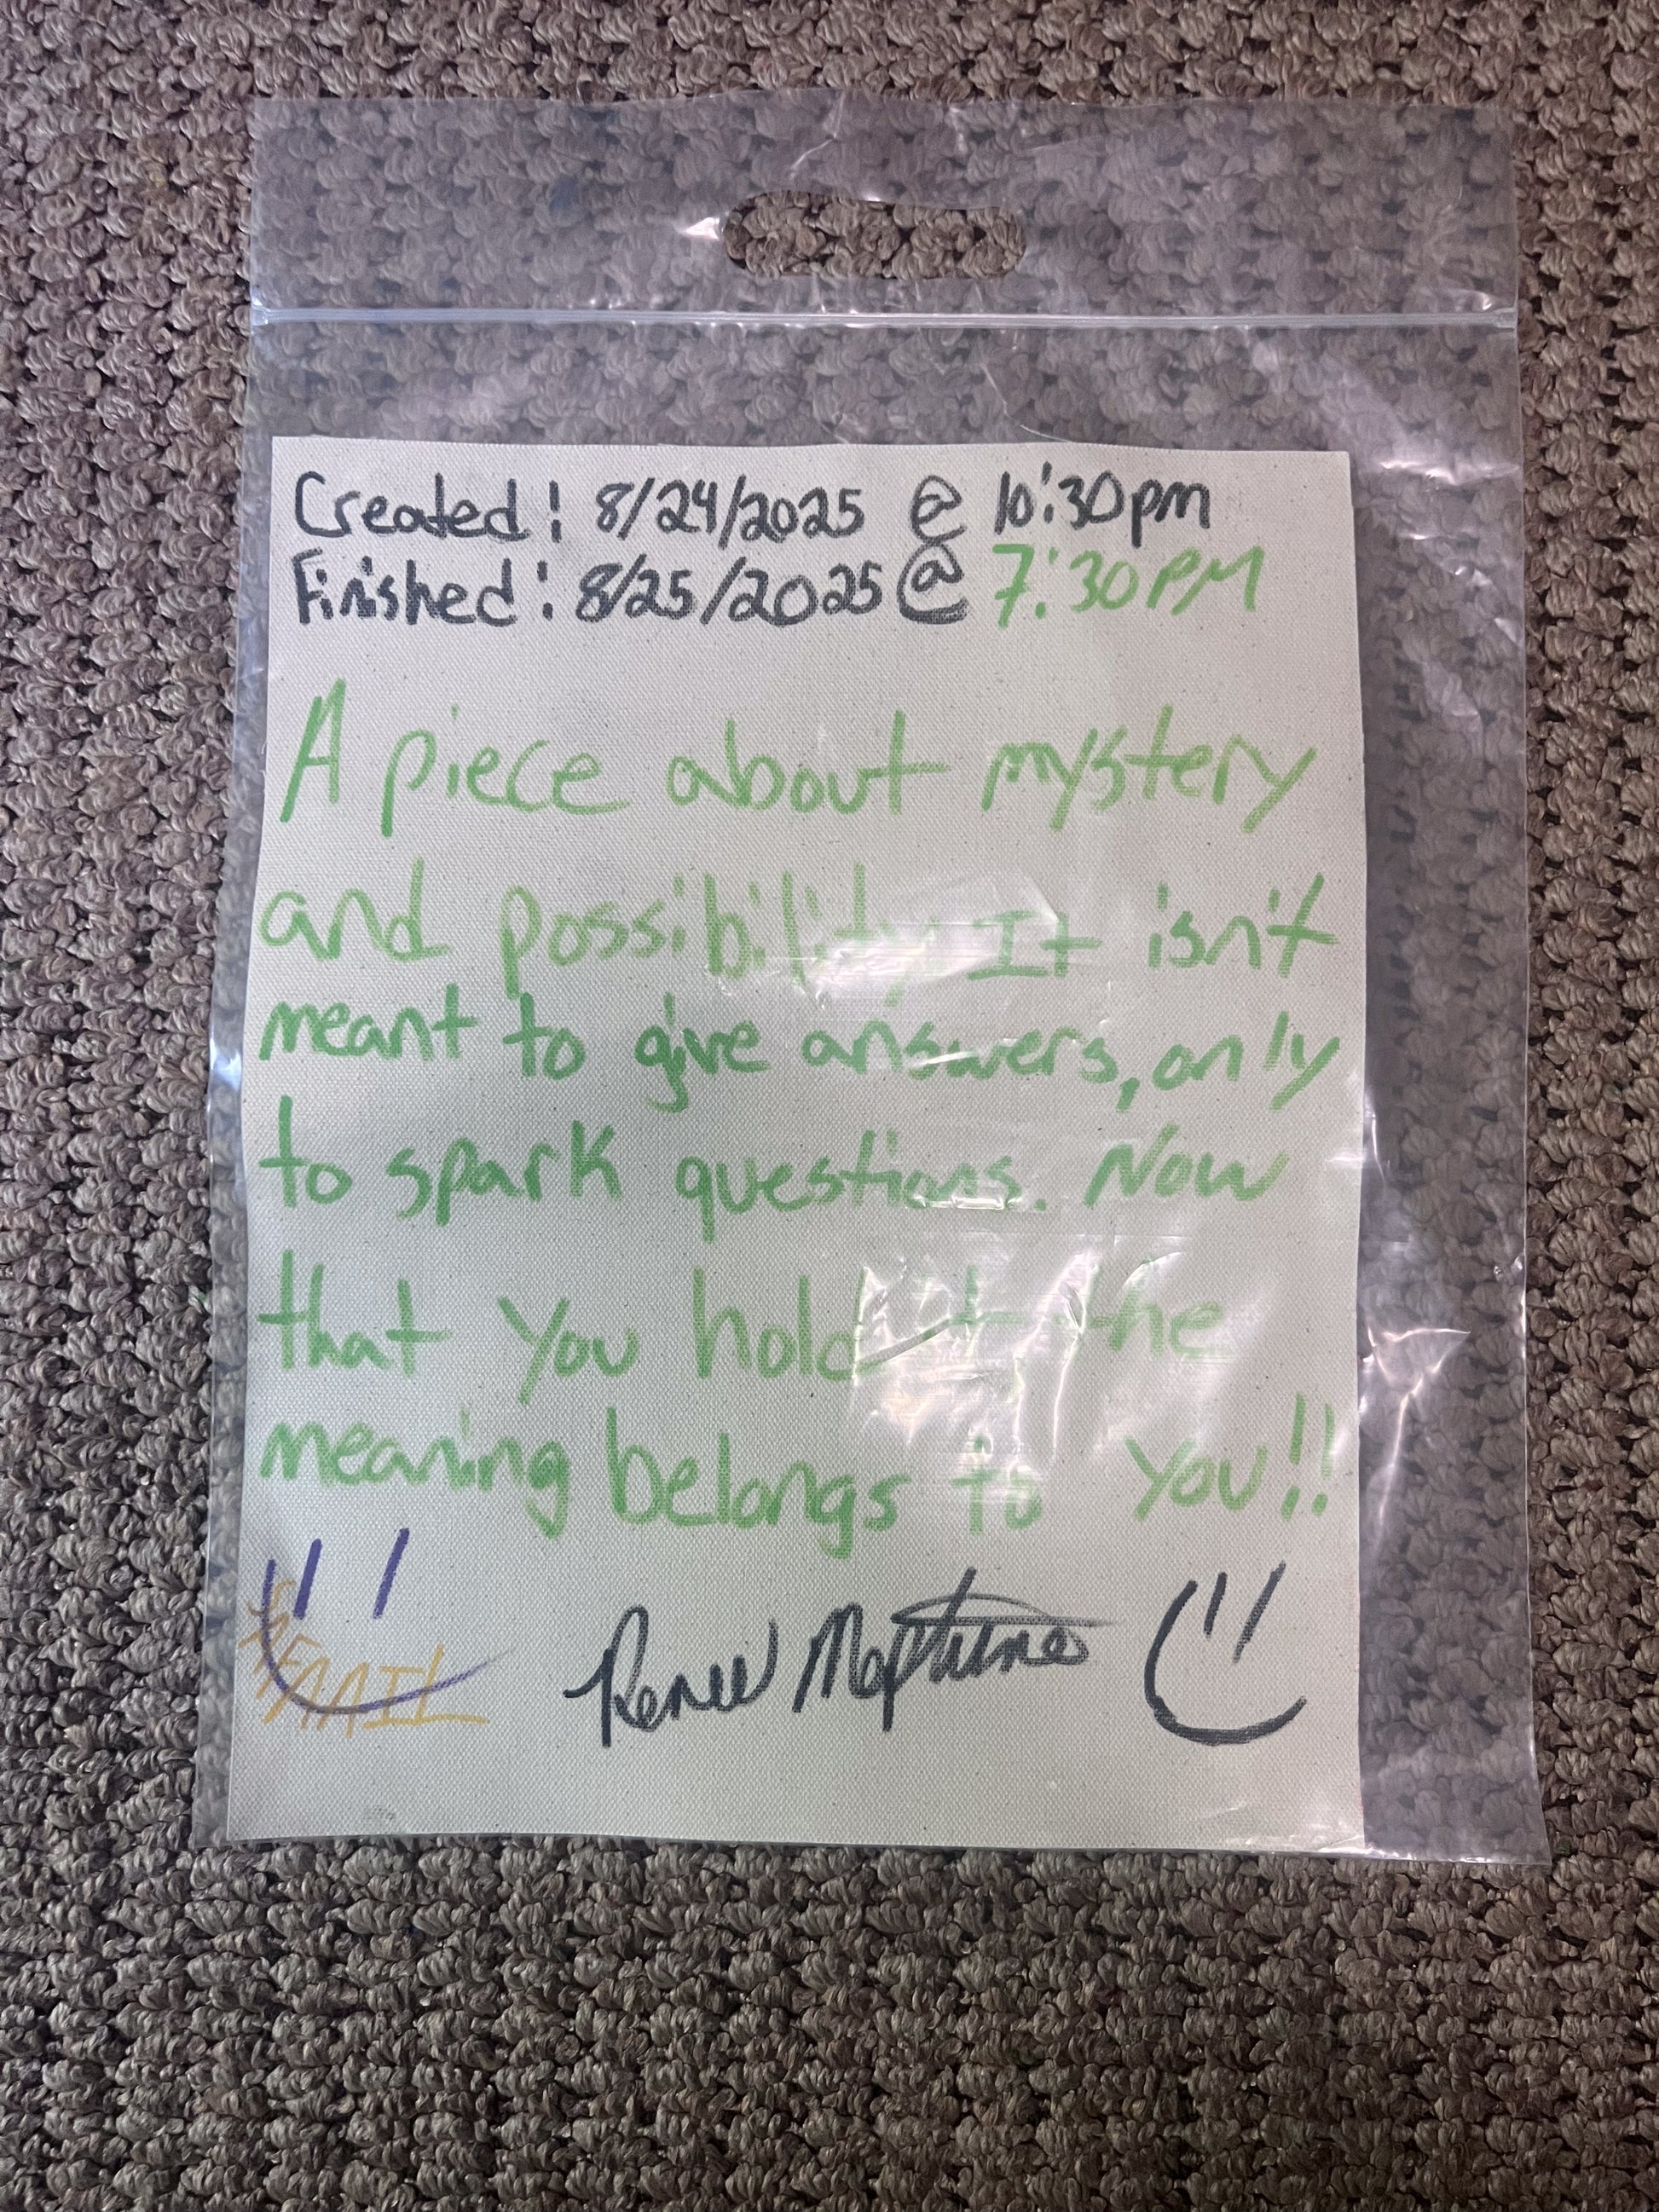 Created: 8/24/2025 @ 10:30pm
Finished: 8/25/2025 @ 7:30PM
A piece about mystery
and possibility. It isn't
meant to give answers, only
to spark questions. Now
that you hold it the
meaning belongs to you!!
Renee Neptune